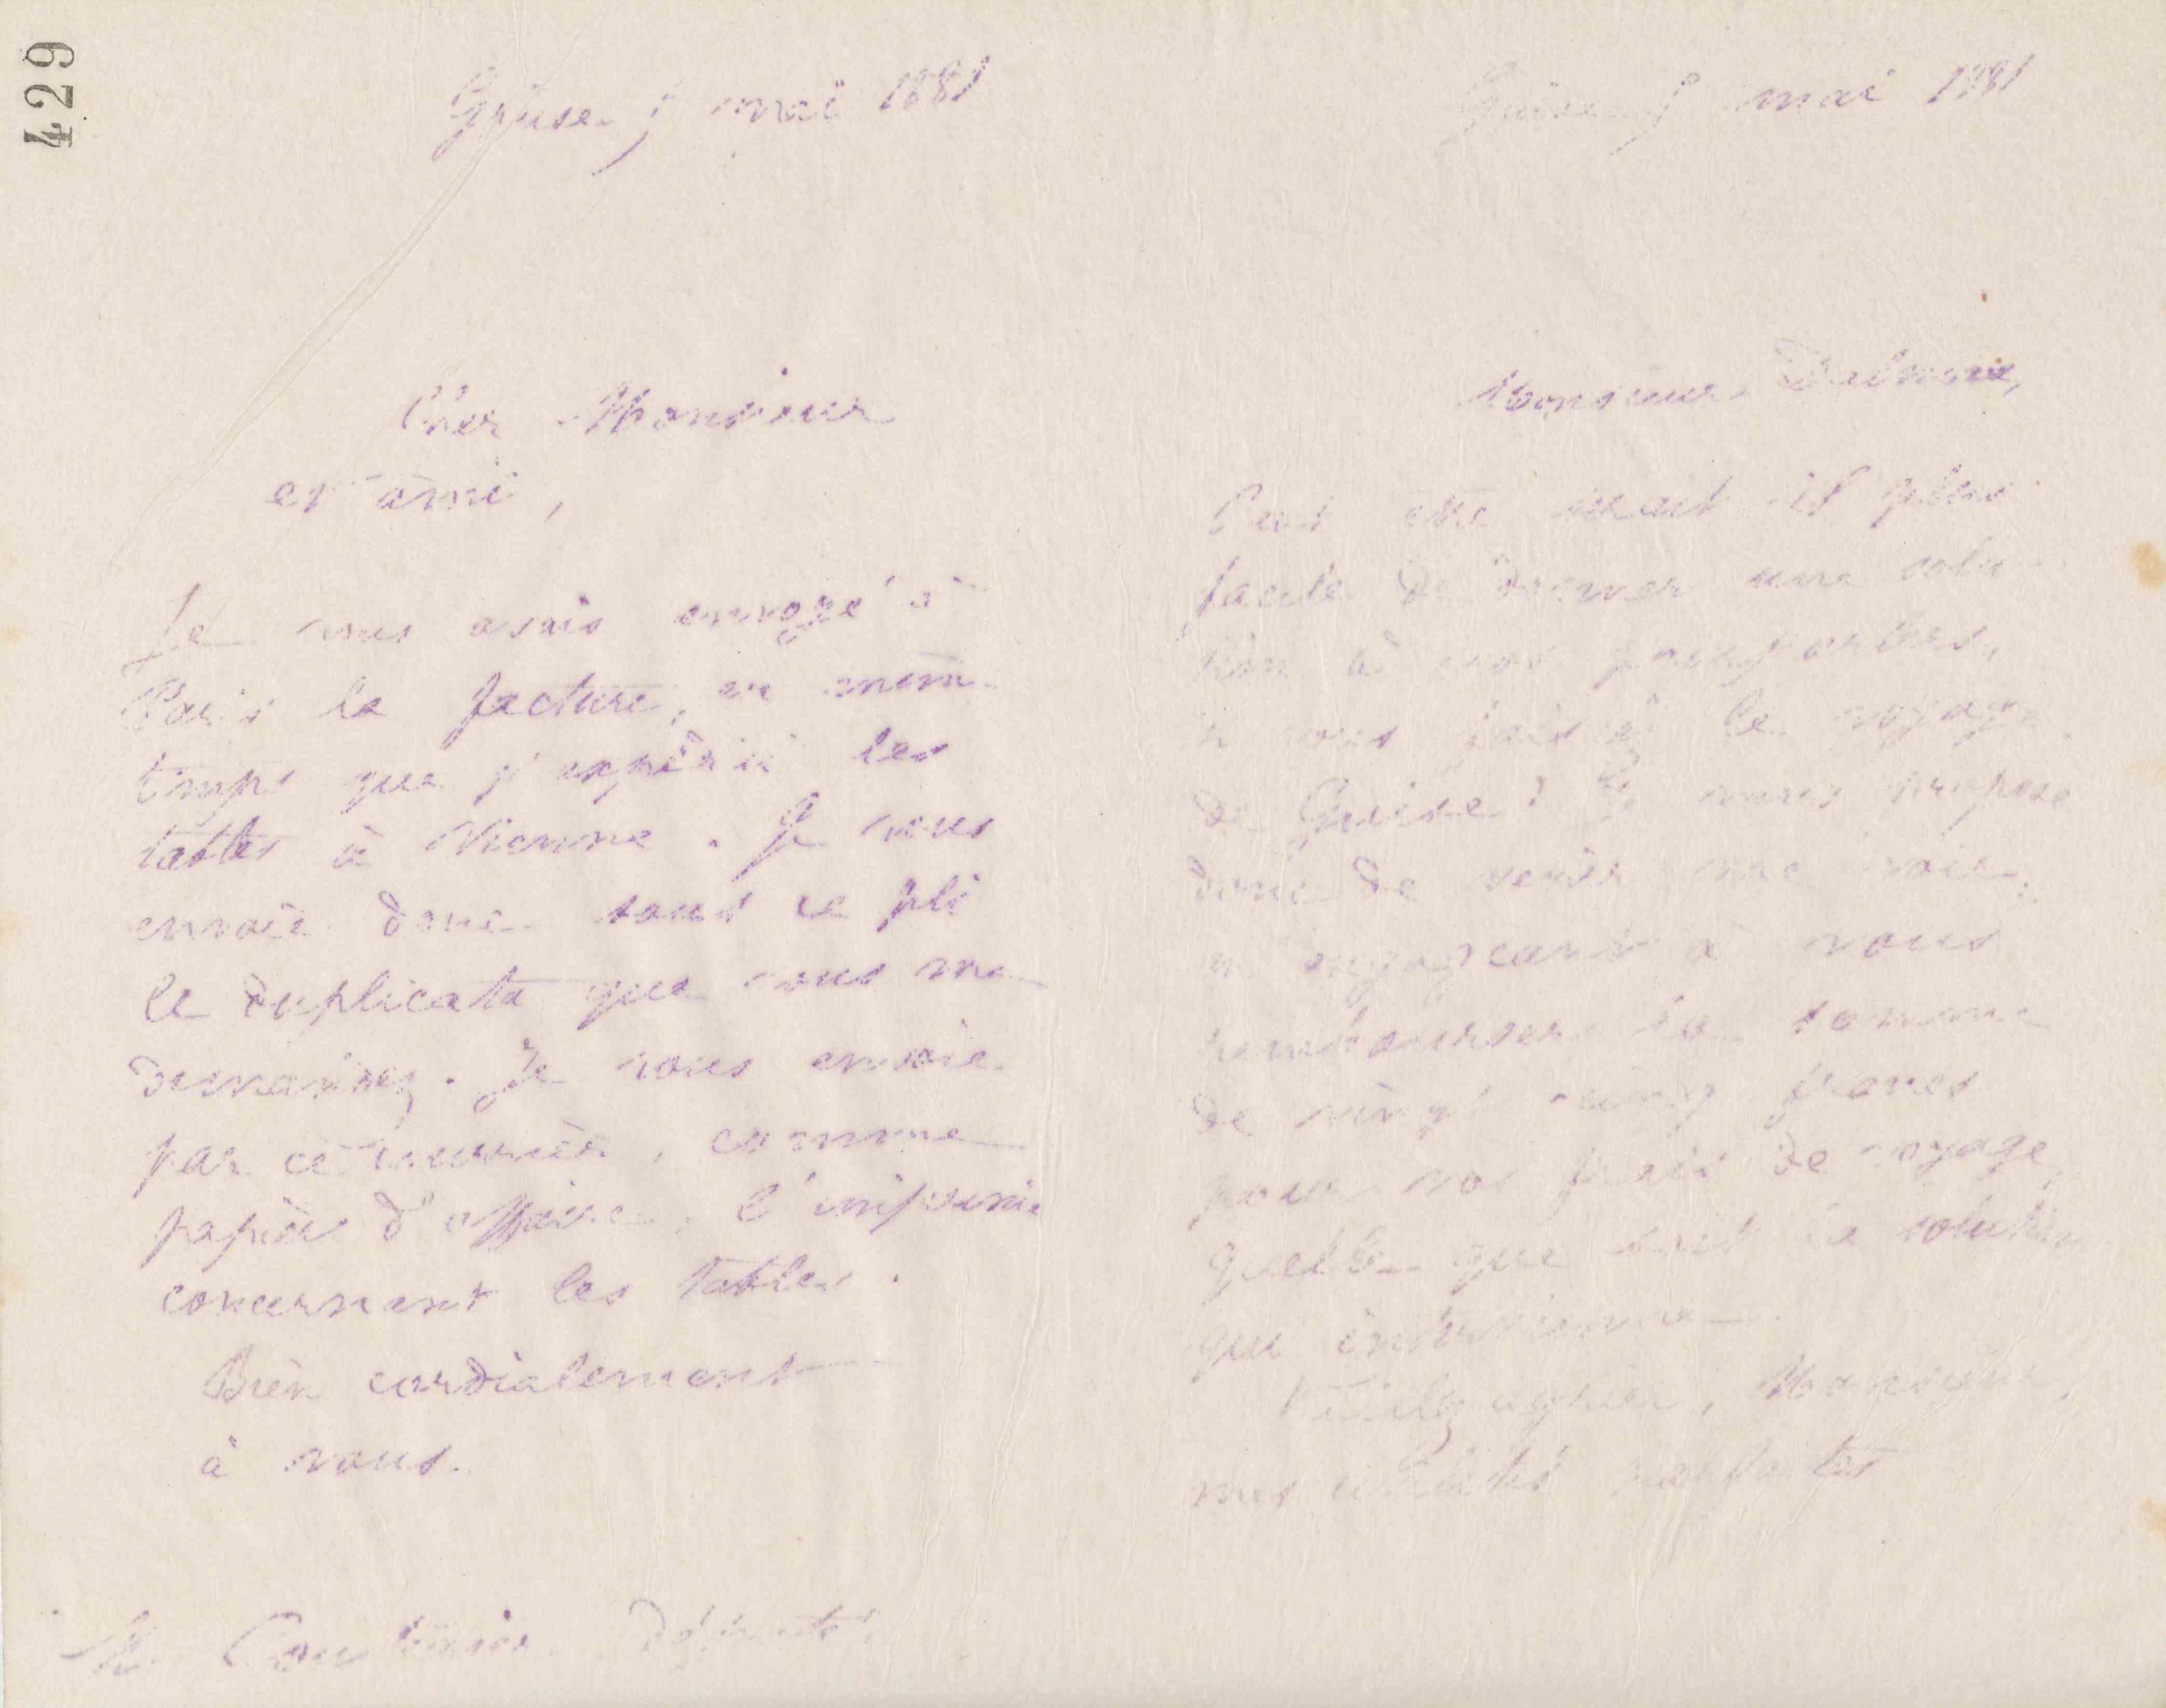 429
Guise, mai 1881
Cher Monsieur
et ami,
Je vous avais envoyé à
Paris la facture, en même
temps que j'expédiai les
tables à Vienne. Je vous
envoie donc sous ce pli
le duplicata que vous me
demandez. Je vous envoie
par ce courrier, comme
papiers d'affaires, l'imprimé
concernant les tables.
Bien cordialement
à vous.
M. Couturier député
Guise mai 1881
Monsieur
Peut être serait il plus
facile de donner une solu-
tion à nos pourparlers,
si vous faisiez le voyage
de Guise? Je vous propose
donc de venir me voir
en m'engageant à vous
rembourser la somme
de vingt cinq francs
pour vos frais de voyage,
quelle que soit la solution
qui intervienne.
Veuillez agréer, Monsieur,
mes civilités parfaites